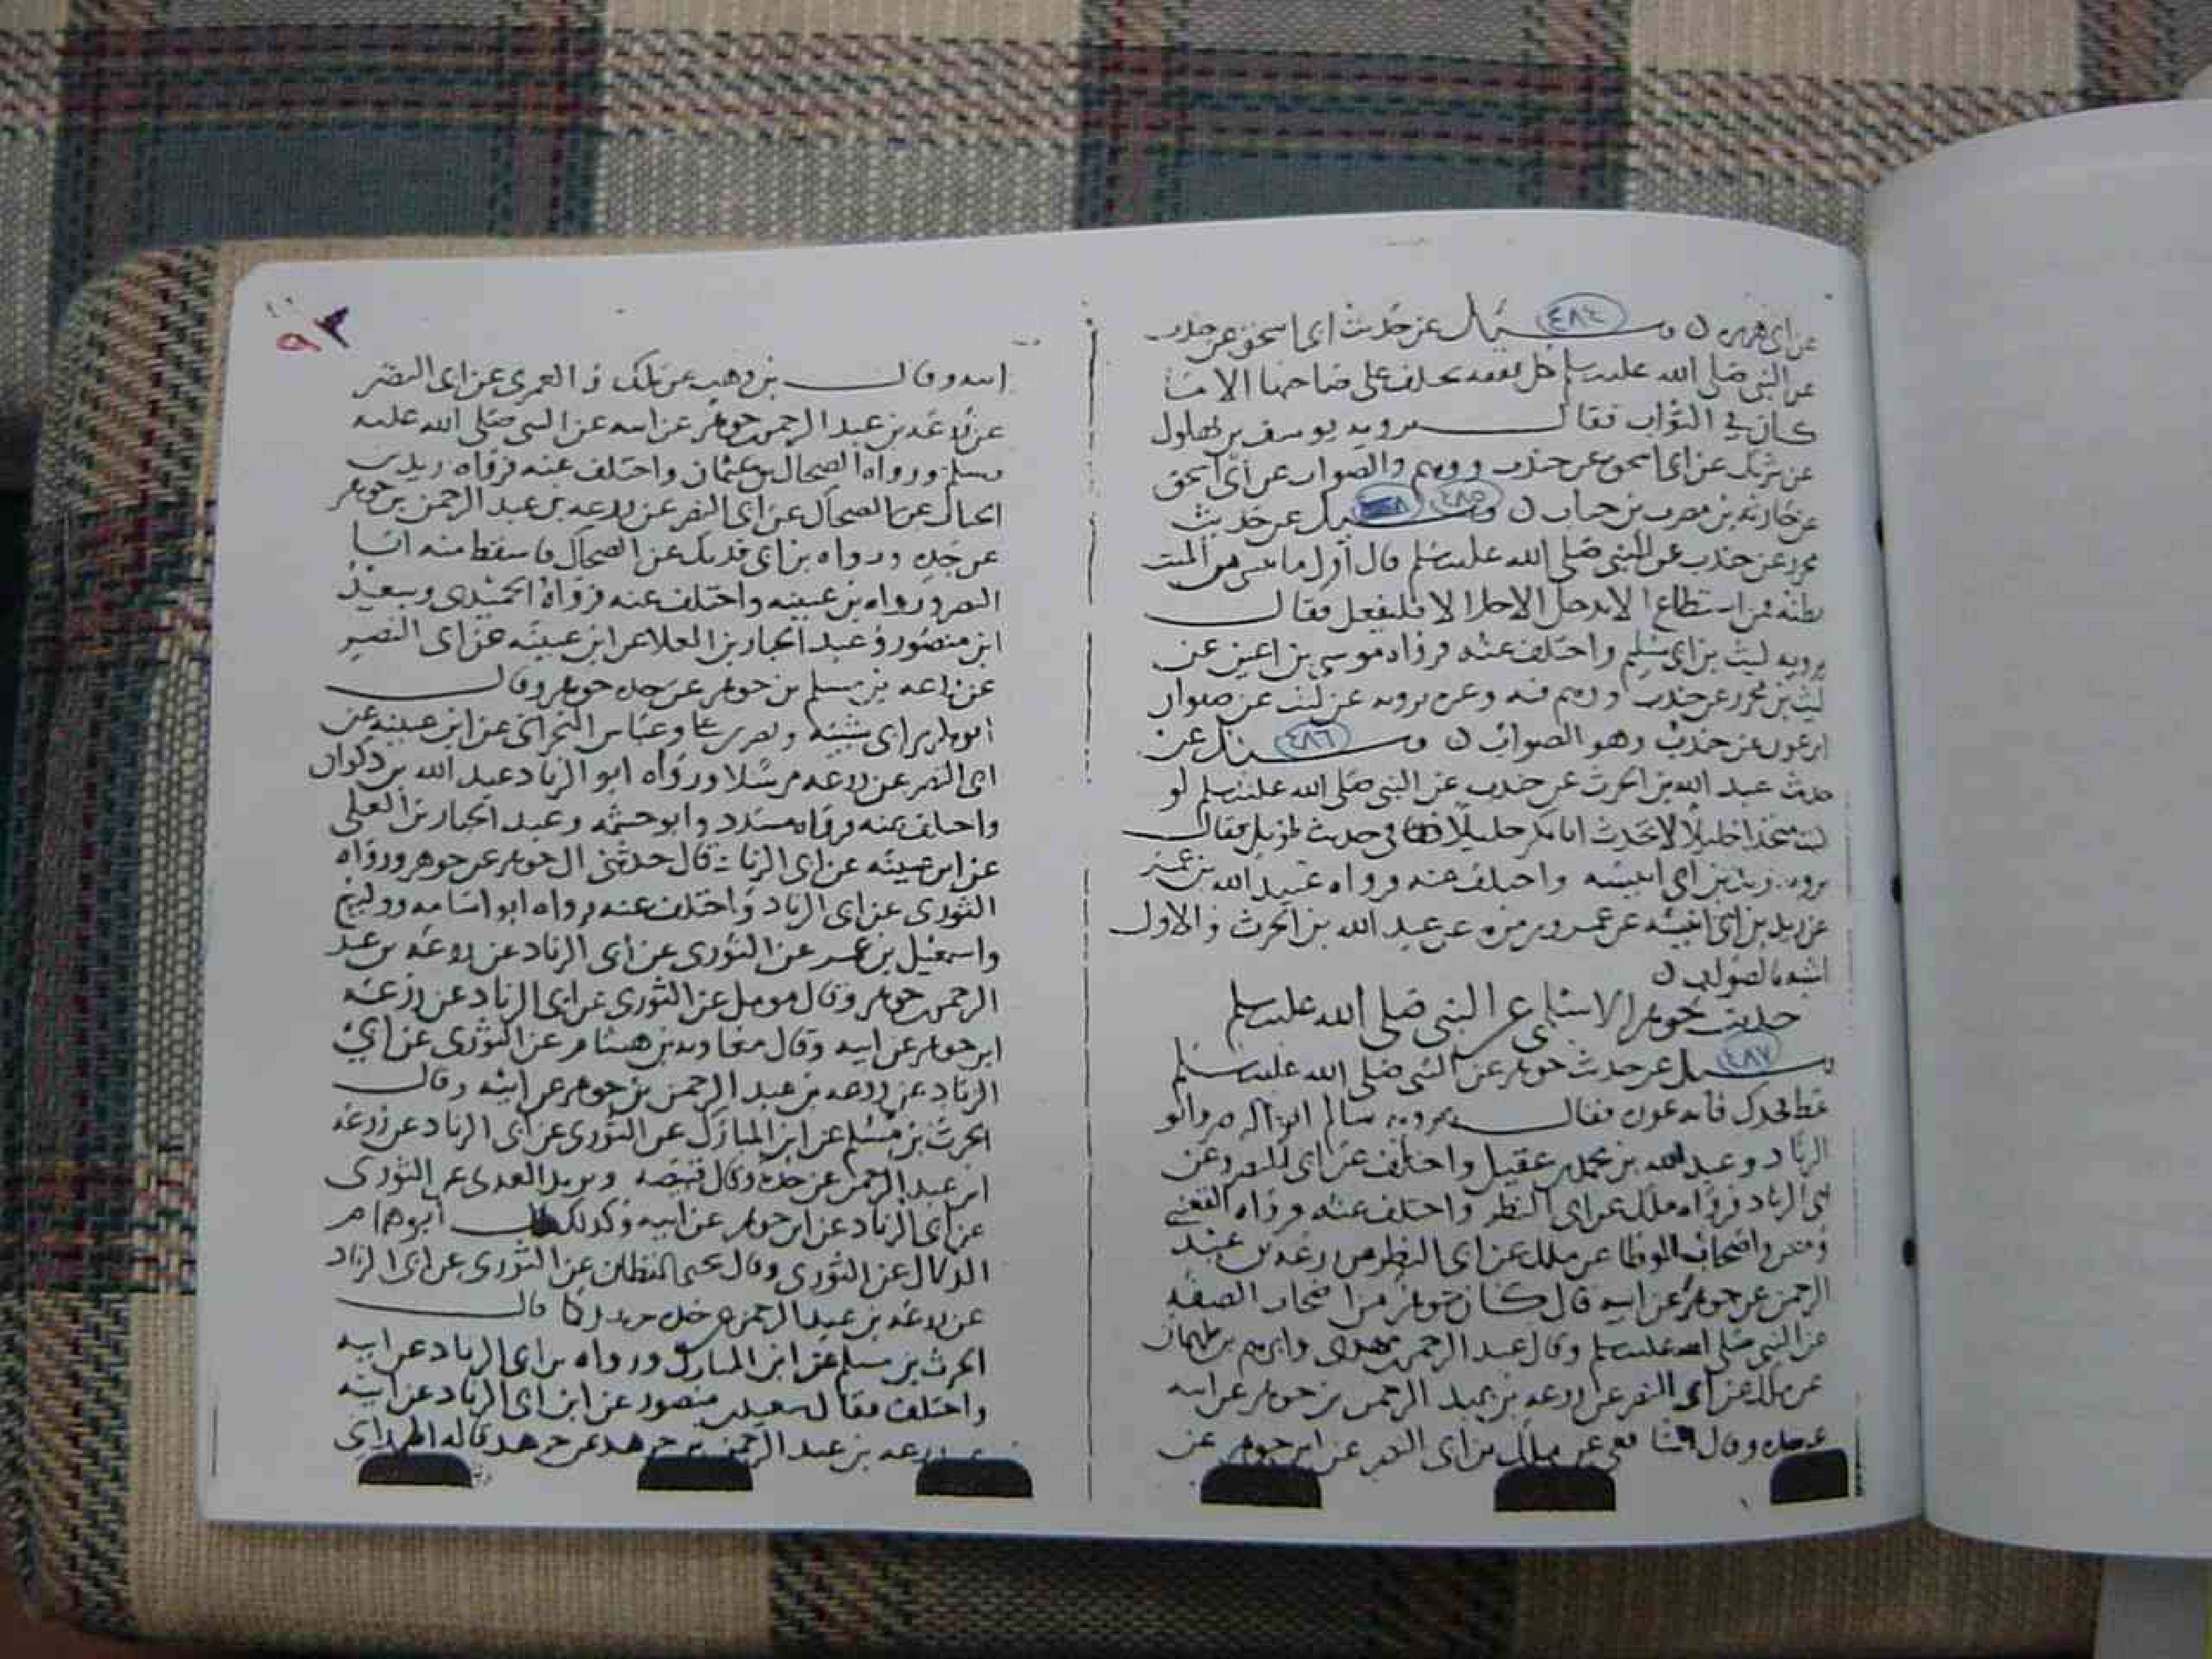 عن ابي هريره ن وسئل ٤٨٤ عن حديث ابي اسحق عن جندب
عن النبي صلى الله عليه وسلم كل نفقه يخلف على صاحبها الا ما
كان في التراب فقال يرويه يوسف بن بهلول
عن شريك عن ابي اسحق عن جندب ووهم والصواب عن ابي اسحق
عن حارثه بن مضرب بن خباب ن ٤٨٥ وسئل عن حديث
محرر عن جندب عن النبي صلى الله عليه وسلم قال اول ما من الميت
بطنه فمن استطاع الا يدخل الا حلالا فليفعل فقال
يرويه ليث بن ابي سليم واختلف عنه فرواه موسى بن اعين عن
ليث بن محرر عن جندب ووهم فيه وغيره يرويه عن ليث عن صفوان
عن جندب وهو الصواب ن ٤٨٦ وسئل عن
حديث عبد الله بن الحرث عن جندب عن النبي صلى الله عليه وسلم لو
كنت متخذا خليلا لاتخذت ابا بكر خليلا في حديث طويل فقال
يرويه زيد بن ابي انيسه واختلف عنه فرواه عبيد الله بن عمرو
عن زيد بن ابي انيسه عن عمرو بن مره عن عبد الله بن الحرث والاول
اشبه بالصواب ن
حديث جرهد الاسلمي عن النبي صلى الله عليه وسلم
٤٨٧ وسئل عن حديث جرهد عن النبي صلى الله عليه وسلم
غط فخذك فانه عوره فقال يرويه سالم ابو النضر وابو
الزناد وعبد الله بن محمد بن عقيل واختلف عن ابي النضر وعن
ابي الزناد فرواه ملك عن ابي النظر واختلف عنه فرواه القعنبي
ومعن واصحاب الموطا عن ملك عن ابي النظر عن زرعه بن عبد
الرحمن عن جرهد عن ابيه قال كان جرهد من اصحاب الصفه
عن النبي صلى الله عليه وسلم وقال عبد الرحمن بن مهدي وابرهيم بن طهمان
عن ملك عن ابي النضر عن زرعه بن عبد الرحمن بن جرهد عن ابيه
عن جده وقال الشافعي عن ملك بن ابي النضر عن ابن جرهد عن
٩٣
ابيه وقال بن وهب عن ملك و العمري عن ابي النضر
عن زرعه بن عبد الرحمن بن جرهد عن ابيه عن النبي صلى الله عليه
وسلم ورواه الضحاك بن عثمان واختلف عنه فرواه زيد بن
الحباب عن الضحاك عن ابي النضر عن زرعه بن عبد الرحمن بن جرهد
عن جده ورواه بن ابي فديك عن الضحاك فاسقط منه ابا
النضر ورواه بن عيينه واختلف عنه فرواه الحميدي وسعيد
ابن منصور وعبد الجبار بن العلا عن ابن عيينه عن ابي النضر
عن زرعه بن مسلم بن جرهد عن جده جرهد وقال
ابو بكر بن ابي شيبه ونصر بن علي وعباس البحراني عن ابن عيينه عن
ابي النضر عن زرعه مرسلا ورواه ابو الزناد عبد الله بن ذكوان
واختلف عنه فرواه مسدد وابو خيثمه وعبد الجبار بن العلى
عن ابن عيينه عن ابي الزناد قال حدثني ال جرهد عن جرهد ورواه
الثوري عن ابي الزناد واختلف عنه فرواه ابو اسامه ووكيع
واسمعيل بن عمر عن الثوري عن ابي الزناد عن زرعه بن عبد
الرحمن بن جرهد وقال مومل عن الثوري عن ابي الزناد عن زرعه
ابن جرهد عن ابيه وقال معاويه بن هشام عن الثوري عن ابي
الزناد عن زرعه بن عبد الرحمن بن جرهد عن ابيه وقال
الحرث بن مسلم عن ابن المبارك عن الثوري عن ابي الزناد عن زرعه
ابن عبد الرحمن عن جده وقال قبيصه ويزيد العدني عن الثوري
عن ابي الزناد عن ابن جرهد عن ابيه وكذلك قال ابو همام
الدلال عن الثوري وقال يحيى القطان عن الثوري عن ابي الزناد
عن زرعه بن عبد الرحمن عن جده جرهد وكذا قال
الحرث بن مسلم عن ابن المبارك ورواه بن ابي الزناد عن ابيه
واختلف فقال سعيد بن منصور عن ابن ابي الزناد عن ابيه
عن زرعه بن عبد الرحمن بن جرهد عن جرهد قاله